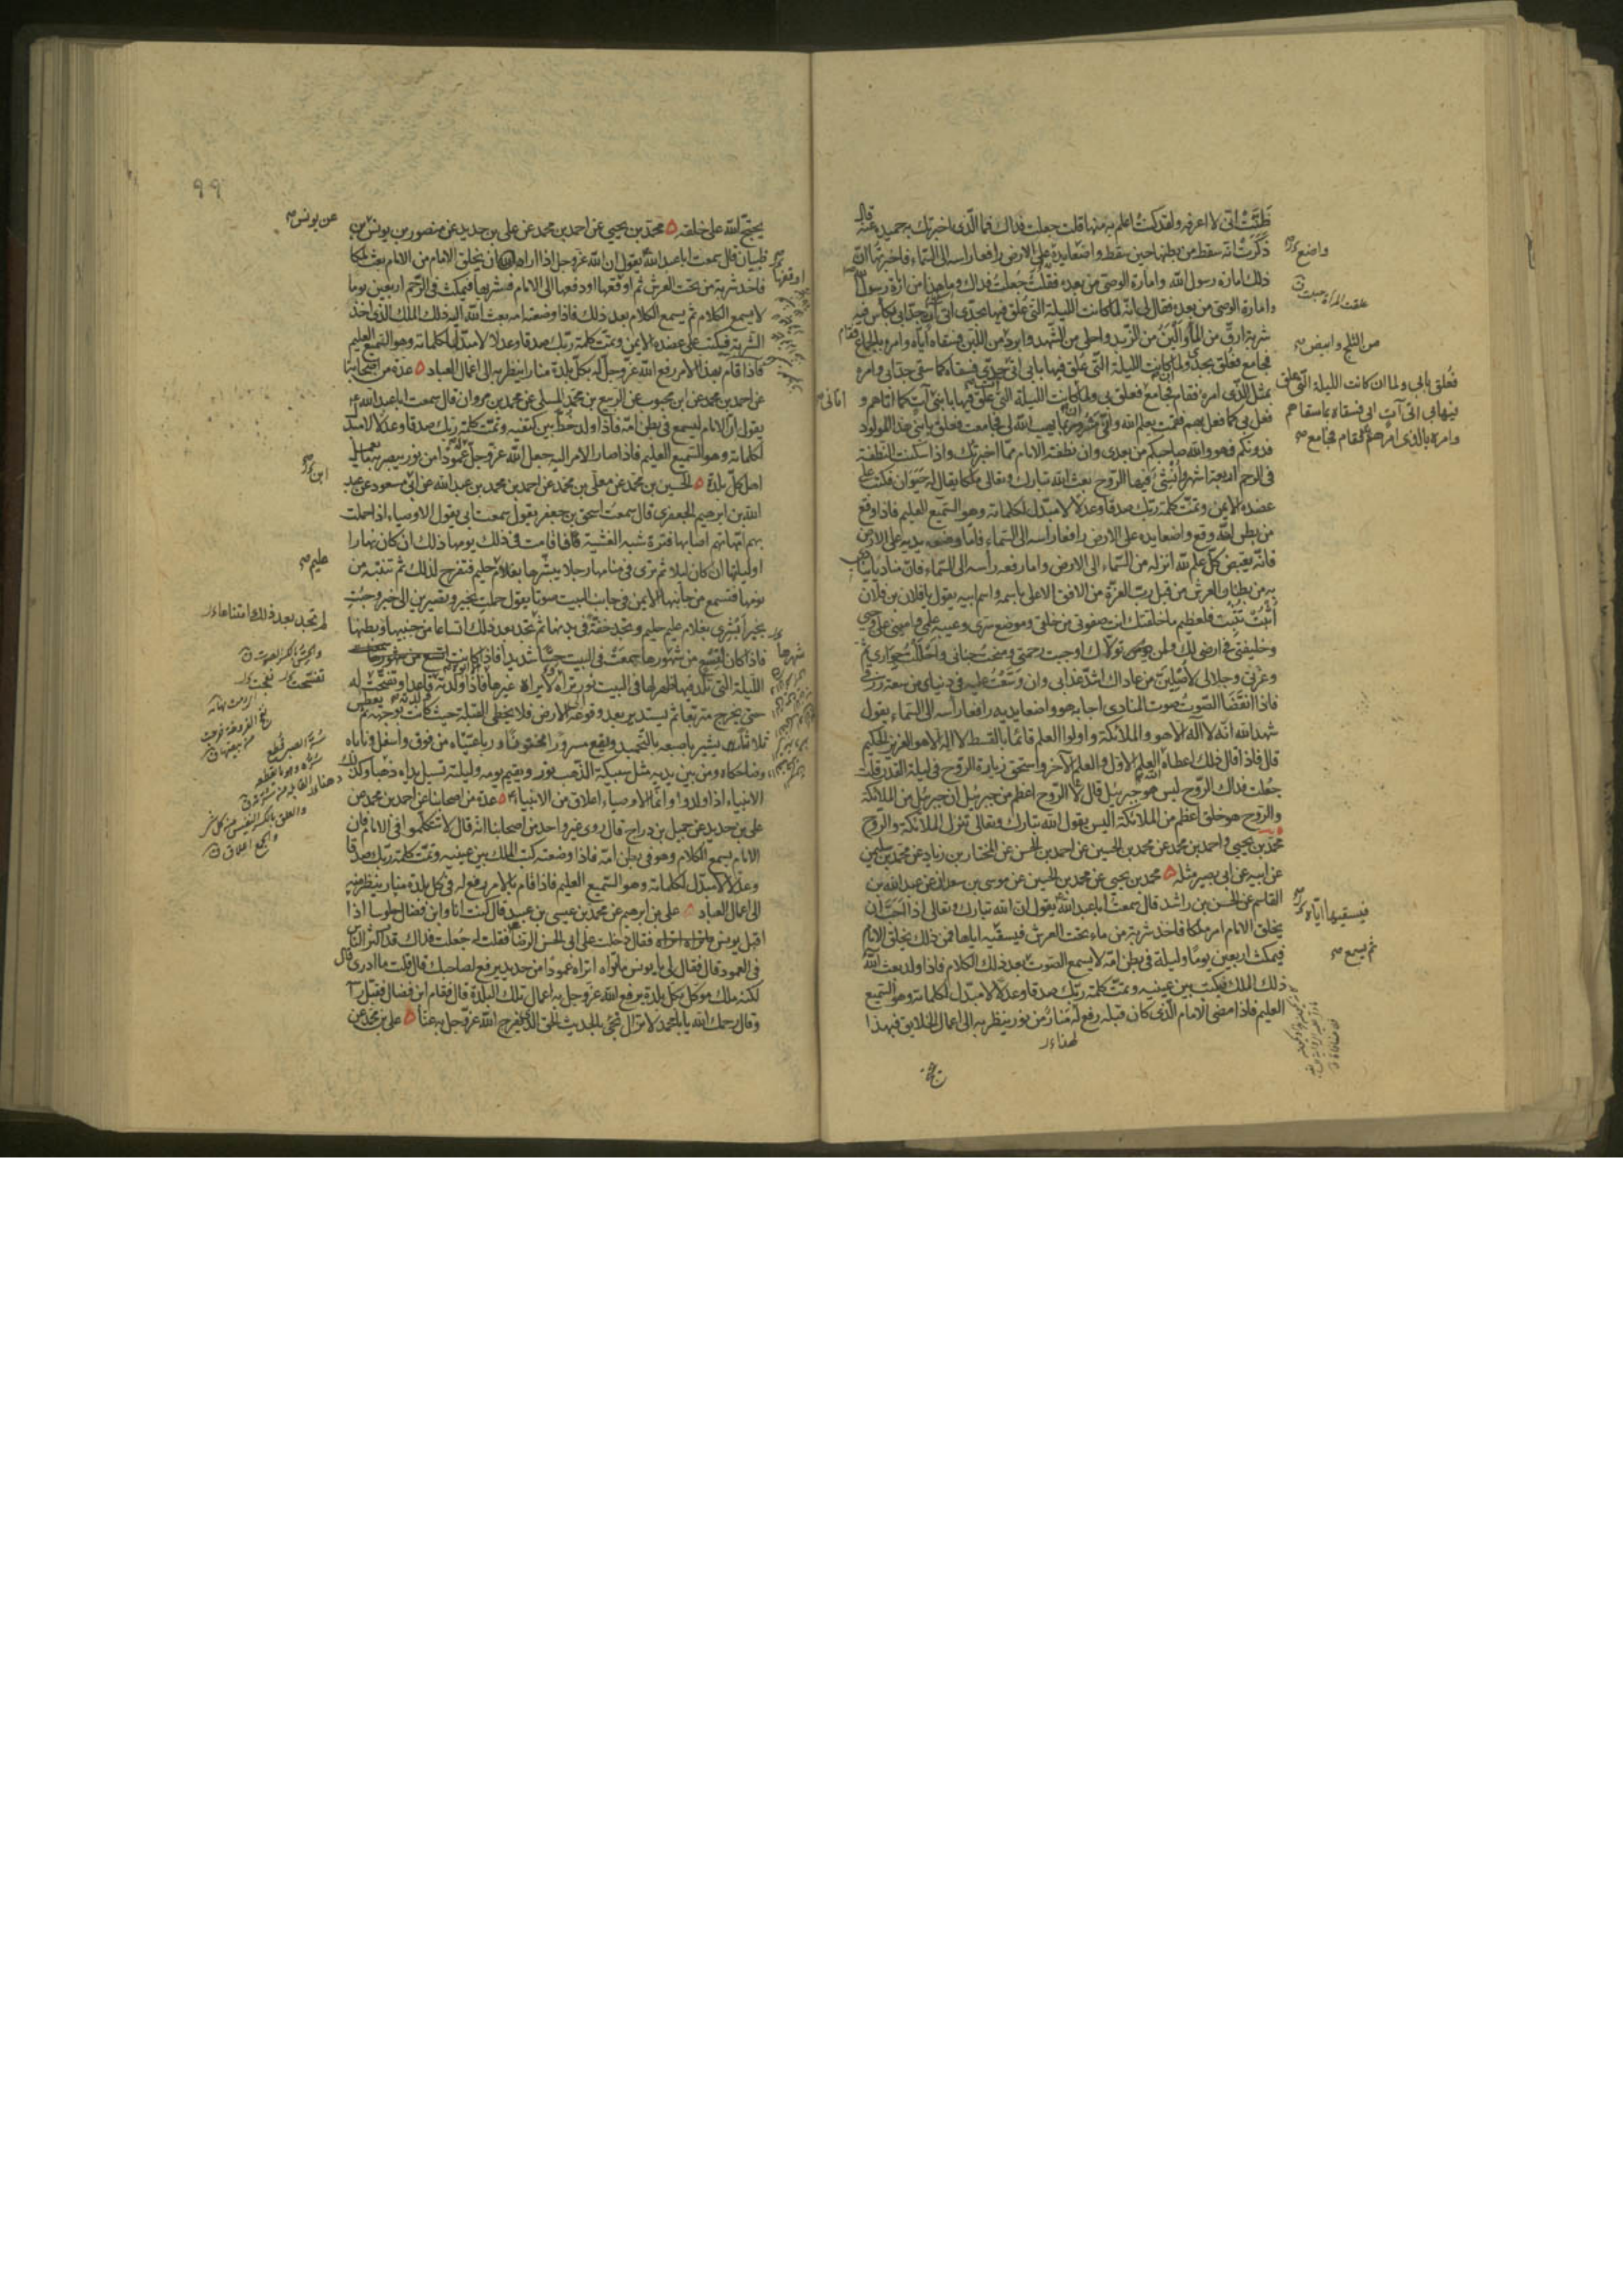 ظننت انى لا اعرفه ولقد كنت اعلم به منها قلت جعلت فداك فما الذى اخبرتك به حميدة عنه قال
ذكرت انه سقط من بطنها حين سقط واضعا يديه على الارض رافعا راسه الى السماء فاخبرتها ان
ذلك امارة رسول الله وامارة الوصى من بعده فقلت جعلت فداك وما هذا من امارة رسول الله
وامارة الوصى من بعده فقال لى انه لما كانت الليلة التى علق فيها بجدى اتى آت جد ابى بكأس فيه
شربة ارق من الماء والين من الزبد واحلى من الشهد وابرد من اللبن فسقاه اياه وامره بالجماع فقام
فجامع فعلق بجدى ولما كانت الليلة التى علق فيها بابى اتى جدى فسقاه كما سقى جد ابى وامره
بمثل الذى امره فقام فجامع فعلق بى ولما كانت الليلة التى علق فيها بابنى آت كما اتاهم و
فعل بى كما فعل بهم فقمت بعلم الله وانى مسرور بما يهب الله لى فجامعت فعلق بابنى هذا المولود
فدونكم فهو والله صاحبكم من بعدى وان نطفة الامام مما اخبرتك واذا سكنت النطفة
فى الرحم اربعة اشهر وانشئ فيها الروح بعث الله تبارك وتعالى ملكا يقال له حيوان فكتب على
عضده الايمن وتمت كلمة ربك صدقا وعدلا لا مبدل لكلماته وهو السميع العليم فاذا وقع
من بطن امه وقع واضعا يديه على الارض رافعا راسه الى السماء فاما وضعه يديه على الارض
فانه يقبض كل علم لله انزله من السماء الى الارض واما رفعه رأسه الى السماء فان مناديا ينادى
به من بطنان العرش من قبل رب العزة من الافق الاعلى باسمه واسم ابيه يقول يا فلان بن فلان
اثبت تثبت فلعظيم ما خلقتك انت صفوتى من خلقى وموضع سرى وعيبة علمى وامينى على وحيى
وخليفتى فى ارضى لك ولمن تولاك اوجبت رحمتى ومنحت جنانى واحللت جوارى ثم
وعزتى وجلالى لاصلين من عاداك اشد عذابى وان وسعت عليه فى دنياى من سعة رزقى
فاذا انقضا الصوت صوت المنادى اجابه هو واضعا يديه رافعا رأسه الى السماء يقول
شهد الله انه لا آله الا هو والملائكة واولوا العلم قائما بالقسط لا اله الا هو العزيز الحكيم
قال فاذا قال ذلك اعطاه الله العلم الاول والعلم الآخر واستحق زيارة الروح فى ليلة القدر قلت
جعلت فداك الروح ليس هو جبرئيل قال لا الروح اعظم من جبرئيل ان جبرئيل من الملائكة
والروح هو خلق اعظم من الملائكة اليس يقول الله تبارك وتعالى تنزل الملائكة والروح
محمد بن يحيى واحمد بن محمد عن محمد بن الحسين عن احمد بن الحسن عن المختار بن زياد عن محمد بن سليمن
عن ابيه عن ابى بصير مثله محمد بن يحيى عن محمد بن الحسين عن موسى بن سعدان عن عبد الله بن
القاسم عن الحسن بن راشد قال سمعت ابا عبد الله يقول ان الله تبارك وتعالى اذا احب ان
يخلق الامام امر ملكا فاخذ شربة من ماء تحت العرش فيسقيه اباها فمن ذلك يخلق الامام
فيمكث اربعين يوما وليلة فى بطن امه لا يسمع الصوت بعد ذلك الكلام فاذا ولد بعث الله
ذلك الملك فيكتب بين عينيه وتمت كلمة ربك صدقا وعدلا لا مبدل لكلماته وهو السميع
العليم فاذا مضى الامام الذى كان قبله رفع له منار من نور ينظر به الى اعمال الخلايق فبهذا
لهذا
واضع
من الثلج وابيض
فعلق بابى ولما ان كانت الليلة التى علق
فيها بى اتى آت ابى فسقاه بما سقاهم
وامره بالذى امرهم فقام فجامع
اتانى
فيسقيها اياه
ثم يسمع
٩٩
يحتج الله على خلقه محمد بن يحيى عن احمد بن محمد عن على بن حديد عن منصور بن يونس بن
ظبيان قال سمعت ابا عبد الله يقول ان الله عز وجل اذا اراد ان يخلق الامام من الامام بعث ملكا
فاخذ شربة من تحت العرش ثم اوقعها او دفعها الى الامام فشربها فيمكث فى الرحم اربعين يوما
لا يسمع الكلام ثم يسمع الكلام بعد ذلك فاذا وضعته امه بعث الله اليه ذلك الملك الذى اخذ
الشربة فيكتب على عضده الايمن وتمت كلمة ربك صدقا وعدلا لا مبدل لكلماته وهو السميع العليم
فاذا قام بهذا الامر رفع الله عز وجل له بكل بلدة منارا ينظر به الى اعمال العباد عدة من اصحابنا
عن احمد بن محمد عن ابن محبوب عن الربيع بن محمد المسلى عن محمد بن مروان قال سمعت ابا عبد الله
يقول ان الامام ليسمع فى بطن امه فاذا ولد خط بين كتفيه وتمت كلمة ربك صدقا وعدلا لا مبدل
لكلماته وهو السميع العليم فاذا صار الامر اليه جعل الله عز وجل له عمودا من نور يبصر به ما يعمل
اهل كل بلدة الحسين بن محمد عن معلى بن محمد عن احمد بن محمد بن عبد الله عن ابى مسعود عن عبد
الله بن ابرهيم الجعفرى قال سمعت اسحق بن جعفر يقول سمعت ابى يقول الاوصياء اذا حملت
بهم امهاتهم اصابها فترة شبه الغشية فاقامت فى ذلك يومها ذلك ان كان نهارا
او ليلتها ان كان ليلا ثم ترى فى منامها رجلا يبشرها بغلام حليم فتفرح لذلك ثم تنتبه من
نومها فتسمع من جانبها الايمن فى جانب البيت صوتا يقول حملت بخير وتصيرين الى خير وجئت
بخير ابشرى بغلام عليم حليم وتجد خفة فى بدنها ثم تجد بعد ذلك اتساعا من جنبيها وبطنها
فاذا كان لتسع من شهورها سمعت فى البيت حسا شديدا فاذا كانت
الليلة التى تلد فيها ظهر لها فى البيت نور تراه لا يراه غيرها فاذا ولدته قاعدا وتفتحت له
حتى يخرج متربعا ثم يستدير بعد وقوعه الى الارض فلا يخطى القبلة حيث كانت بوجهه ثم يعطس
ثلاثا يشير باصبعه بالتحميد ويقع مسرورا مختونا ورباعيتاه من فوق واسفل وناباه
وضاحكاه ومن بين يديه مثل سبيكة الذهب نور ويقيم يومه وليلته تسيل يداه ذهبا وكذلك
الانبياء اذا ولدوا وانما الاوصياء اعلاق من الانبياء عدة من اصحابنا عن احمد بن محمد عن
على بن حديد عن جميل بن دراج قال روى غير واحد من اصحابنا انه قال لا تتكلموا فى الامام فان
الامام يسمع الكلام وهو فى بطن امه فاذا وضعته كتب الملك بين عينيه وتمت كلمة ربك صدقا
وعدلا لا مبدل لكلماته وهو السميع العليم فاذا قام بالامر رفع له فى كل بلدة منار ينظر منه
الى اعمال العباد على بن ابرهيم عن محمد بن عيسى بن عبيد قال كنت انا وابن فضال جلوسا اذا
اقبل يونس فقال دخلت على ابى الحسن الرضا فقلت له جعلت فداك قد اكثر الناس
فى العمود قال فقال لى يا يونس ما تراه اتراه عمودا من حديد يرفع لصاحبك قال قلت ما ادرى قال
لكنه ملك موكل بكل بلدة يرفع الله عز وجل به اعمال تلك البلدة قال فقام ابن فضال فقبل رأسه
وقال رحمك الله يا با محمد لا تزال تجئ بالحديث الحق الذى يفرج الله عز وجل به عنا على بن محمد عن
عن يونس
اوقفها
ابن
عليم
لم تجد بعد ذلك امتناعا
شهرها